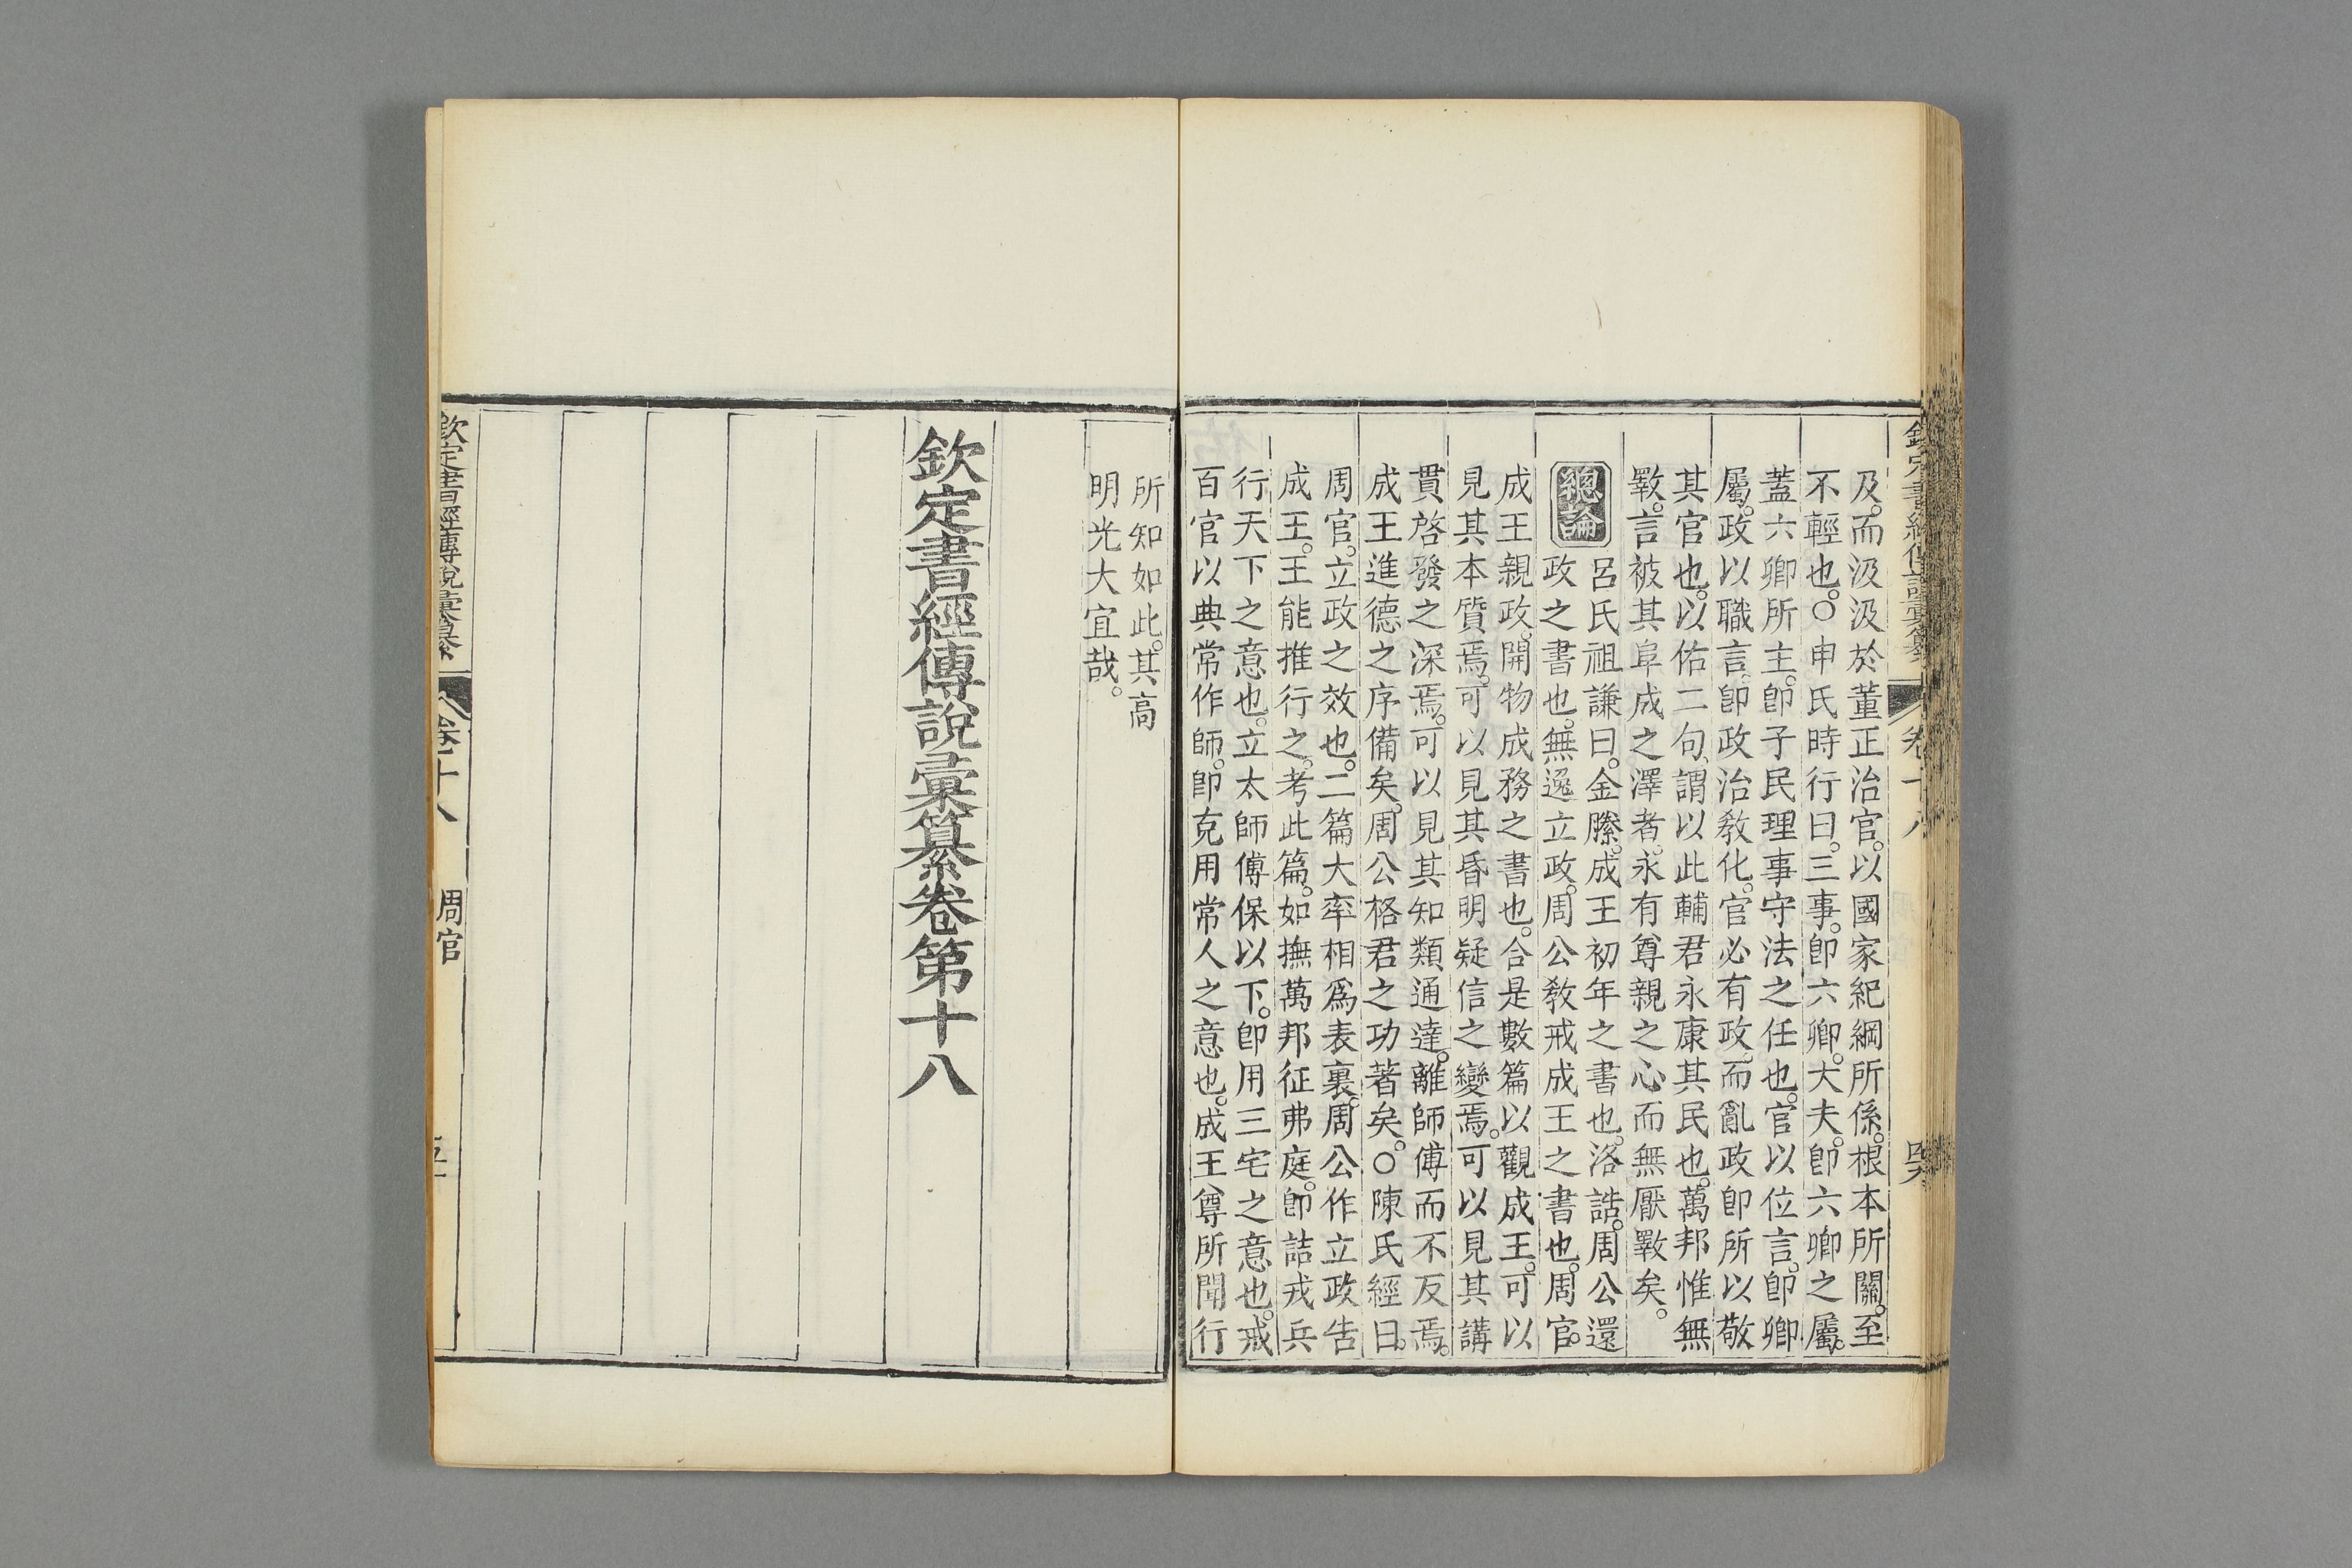 及。而汲汲於董正治官。以國家紀綱所係。根本所關。至
不輕也。○申氏時行曰。三事。卽六卿。大夫。卽六卿之屬。
蓋六卿所主。卽子民理事守法之任也。官以位言。卽卿
屬。政以職言。卽政治敎化。官必有政。而亂政卽所以敬
其官也。以佑二句。謂以此輔君永康其民也。萬邦惟無
斁。言被其阜成之澤者。永有尊親之心而無厭斁矣。
總論
呂氏祖謙曰。金縢。成王初年之書也。洛誥。周公還
政之書也。無逸立政。周公敎戒成王之書也。周官。
成王親政。開物成務之書也。合是數篇以觀成王。可以
見其本質焉。可以見其昏明疑信之變焉。可以見其講
貫啓發之深焉。可以見其知類通達。離師傅而不反焉。
成王進德之序備矣。周公格君之功著矣。○陳氏經曰。
周官。立政之效也。二篇大率相爲表裏。周公作立政告
成王。王能推行之。考此篇。如撫萬邦征弗庭。卽詰戎兵
行天下之意也。立太師傅保以下。卽用三宅之意也。戒
百官以典常作師。卽克用常人之意也。成王尊所聞行
所知如此。其高
明光大宜哉。
欽定書經傳說彙纂卷第十八
欽定書經傳說彙纂 卷十八 周官